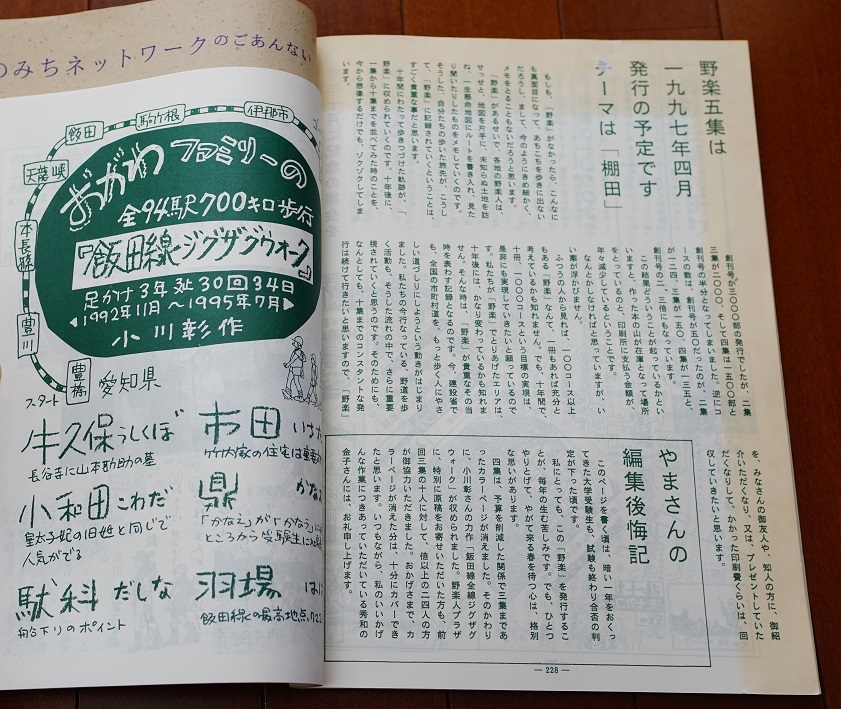 のみちネットワークのごあんない
伊那市
駒ヶ根
飯田
天龍峡
本長篠
豊川
豊橋
おがわファミリーの
全94駅700キロ歩行
『飯田線ジグザグウォーク』
足かけ3年延30回34日
1992年11月~1995年7月
小川彰作
スタート
愛知県
牛久保うしくぼ
長谷寺に山本勘助の墓
市田
竹内家の住宅は
小和田こわだ
皇太子妃の旧姓と同じで
人気がでる
鼎
かな
「かなえ」が「かなう」に
ところから受験生に
駄科だしな
舟台下りのポイント
羽場
飯田線の最高地点
野楽五集は
一九九七年四月
発行の予定です
テーマは「棚田」
もしも、「野楽」がなかったら、こんなに
も真面目になって、あちこちを歩きに出ない
だろうし、まして、今のようにきめ細かく、
メモをとることもないだろうと思います。
「野楽」があるせいで、各地の野楽人は、
せっせと、地図を片手に、未知らぬ土地を訪
ね、一生懸命地図にルートを書き入れ、見た
り聞いたりしたものをメモしていくのです。
そうした、自分たちの歩いた旅先が、こうし
て、「野楽」に記録されていくということは、
すごく貴重な事だと思います。
十年間にわたって歩きつづけた軌跡が、「
野楽」に収められていくのです。十年後に、
一集から十集までを並べてみた時のことを、
今から想像するだけでも、ゾクゾクしてしま
います。
創刊号が三〇〇〇部の発行でしたが、二集
三集が二〇〇〇、そして四集は一五〇〇部と
創刊号の半分となってしまいました。逆にコ
ースの数は、創刊号が五〇だったのが、二集
が一二四、三集が一五〇、四集が一三五と、
創刊号の二、三倍にもなっています。
この結果どういうことが起っているかとい
いますと、作った本の山が在庫となって場所
をとっているのと、印刷所に支払う金額が、
年々減少しているということです。
なんとかしなければと思っていますが、い
い案が浮かびません。
ふつうの人から見れば、一〇〇コース以上
もある「野楽」なんて、一冊もあれば充分と
考えているかも知れません。でも、十年間で、
十冊、一〇〇〇コースという目標の実現は、
是非にも実現していきたいと願っているので
す。私たちが「野楽」でとりあげたエリアは、
十年後には、かなり変わっているかも知れま
せん。そんな時は、「野楽」が貴重なその当
時を表わす記録となるのです。今、建設省で
も、全国の市町村道を、もっと歩く人にやさ
しい道づくりにしようという動きがはじまり
ました。私たちの今行なっている、野道を歩
く活動も、そうした流れの中で、さらに重要
視されていくと思うのです。そのためにも、
なんとしても、十集までのコンスタントな発
行は続けて行きたいと思いますので、「野楽」
を、みなさんの御友人や、知人の方に、御紹
介いただくなり、又は、プレゼントしていた
だくなりして、かかった印刷費くらいは、回
収していきたいと思います。
やまさんの
編集後悔記
このページを書く頃は、暗い一年をおくっ
てきた大学受験生も、試験も終わり合否の判
定が下った頃です。
私にとっても、この「野楽」を発行するこ
とが、毎年の生む苦しみです。でも、ひとつ
やりとげて、やがて来る春を待つ心は、格別
な思いがあります。
四集は、予算を削減した関係で三集まであ
ったカラーページが消えました。そのかわり
に、小川彰さんの力作「飯田線全線ジグザグ
ウォーク」が収められました。野楽人プラザ
に、特別に原稿をお寄せいただいた方も、前
回三集の十人に対して、倍以上の二四人の方
が御協力いただきました。おかげさまで、カ
ラーページが消えた分は、十分にカバーでき
たと思います。いつもながら、私のいいかげ
んな作業につきあっていただいている秀和の
金子さんには、お礼申し上げます。
— 228 —